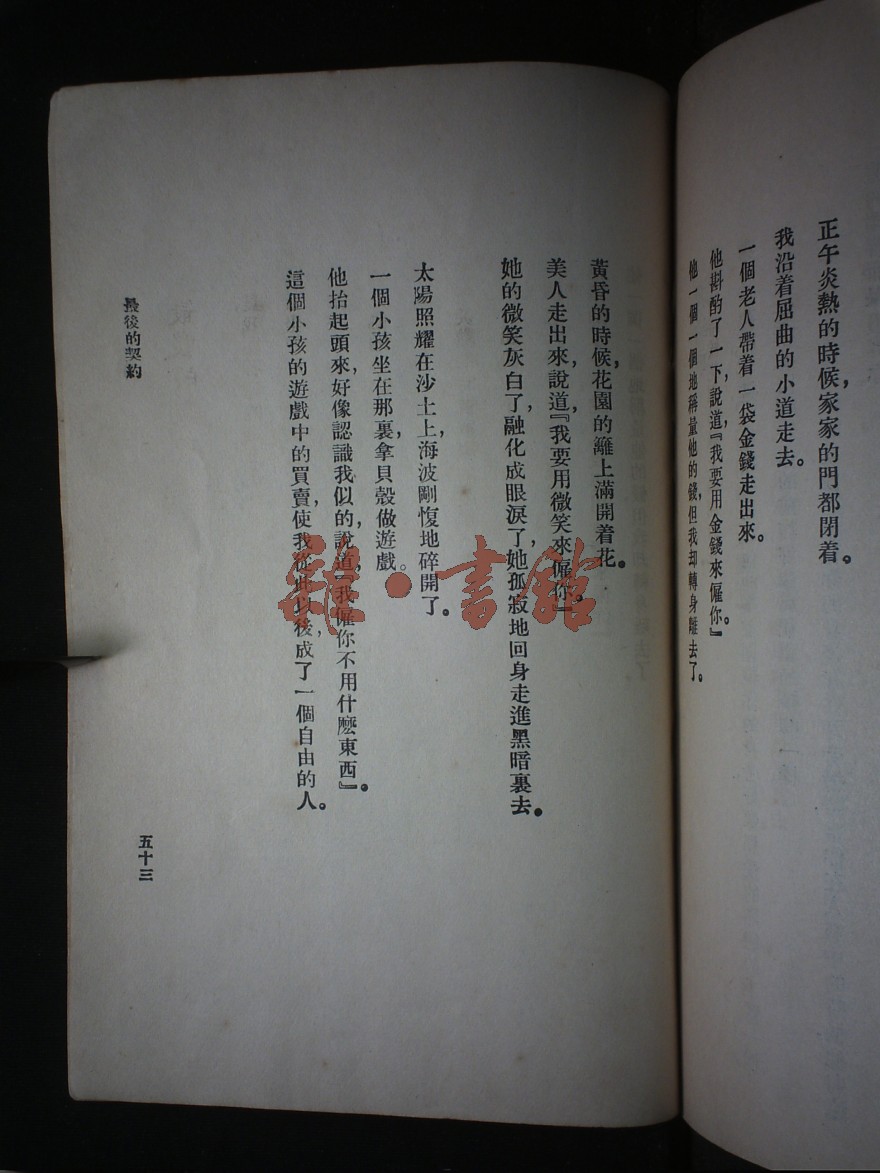 正午炎熱的時候,家家的門都閉着。
我沿着屈曲的小道走去。
一個老人帶着一袋金錢走出來。
他斟酌了一下,說道『我要用金錢來僱你。』
他一個一個地稱量他的錢,但我却轉身離去了。
黃昏的時候,花園的籬上滿開着花。
美人走出來,說道『我要用微笑來僱你。』
她的微笑灰白了,融化成眼淚了,她孤寂地回身走進黑暗裏去。
太陽照耀在沙土上,海波剛愎地碎開了。
一個小孩坐在那裏拿貝殼做遊戲。
他抬起頭來,好像認識我似的,說道『我僱你不用什麽東西』。
這個小孩的遊戲中的買賣,使我從此以後,成了一個自由的人。
最後的契約
五十三
雜·書館